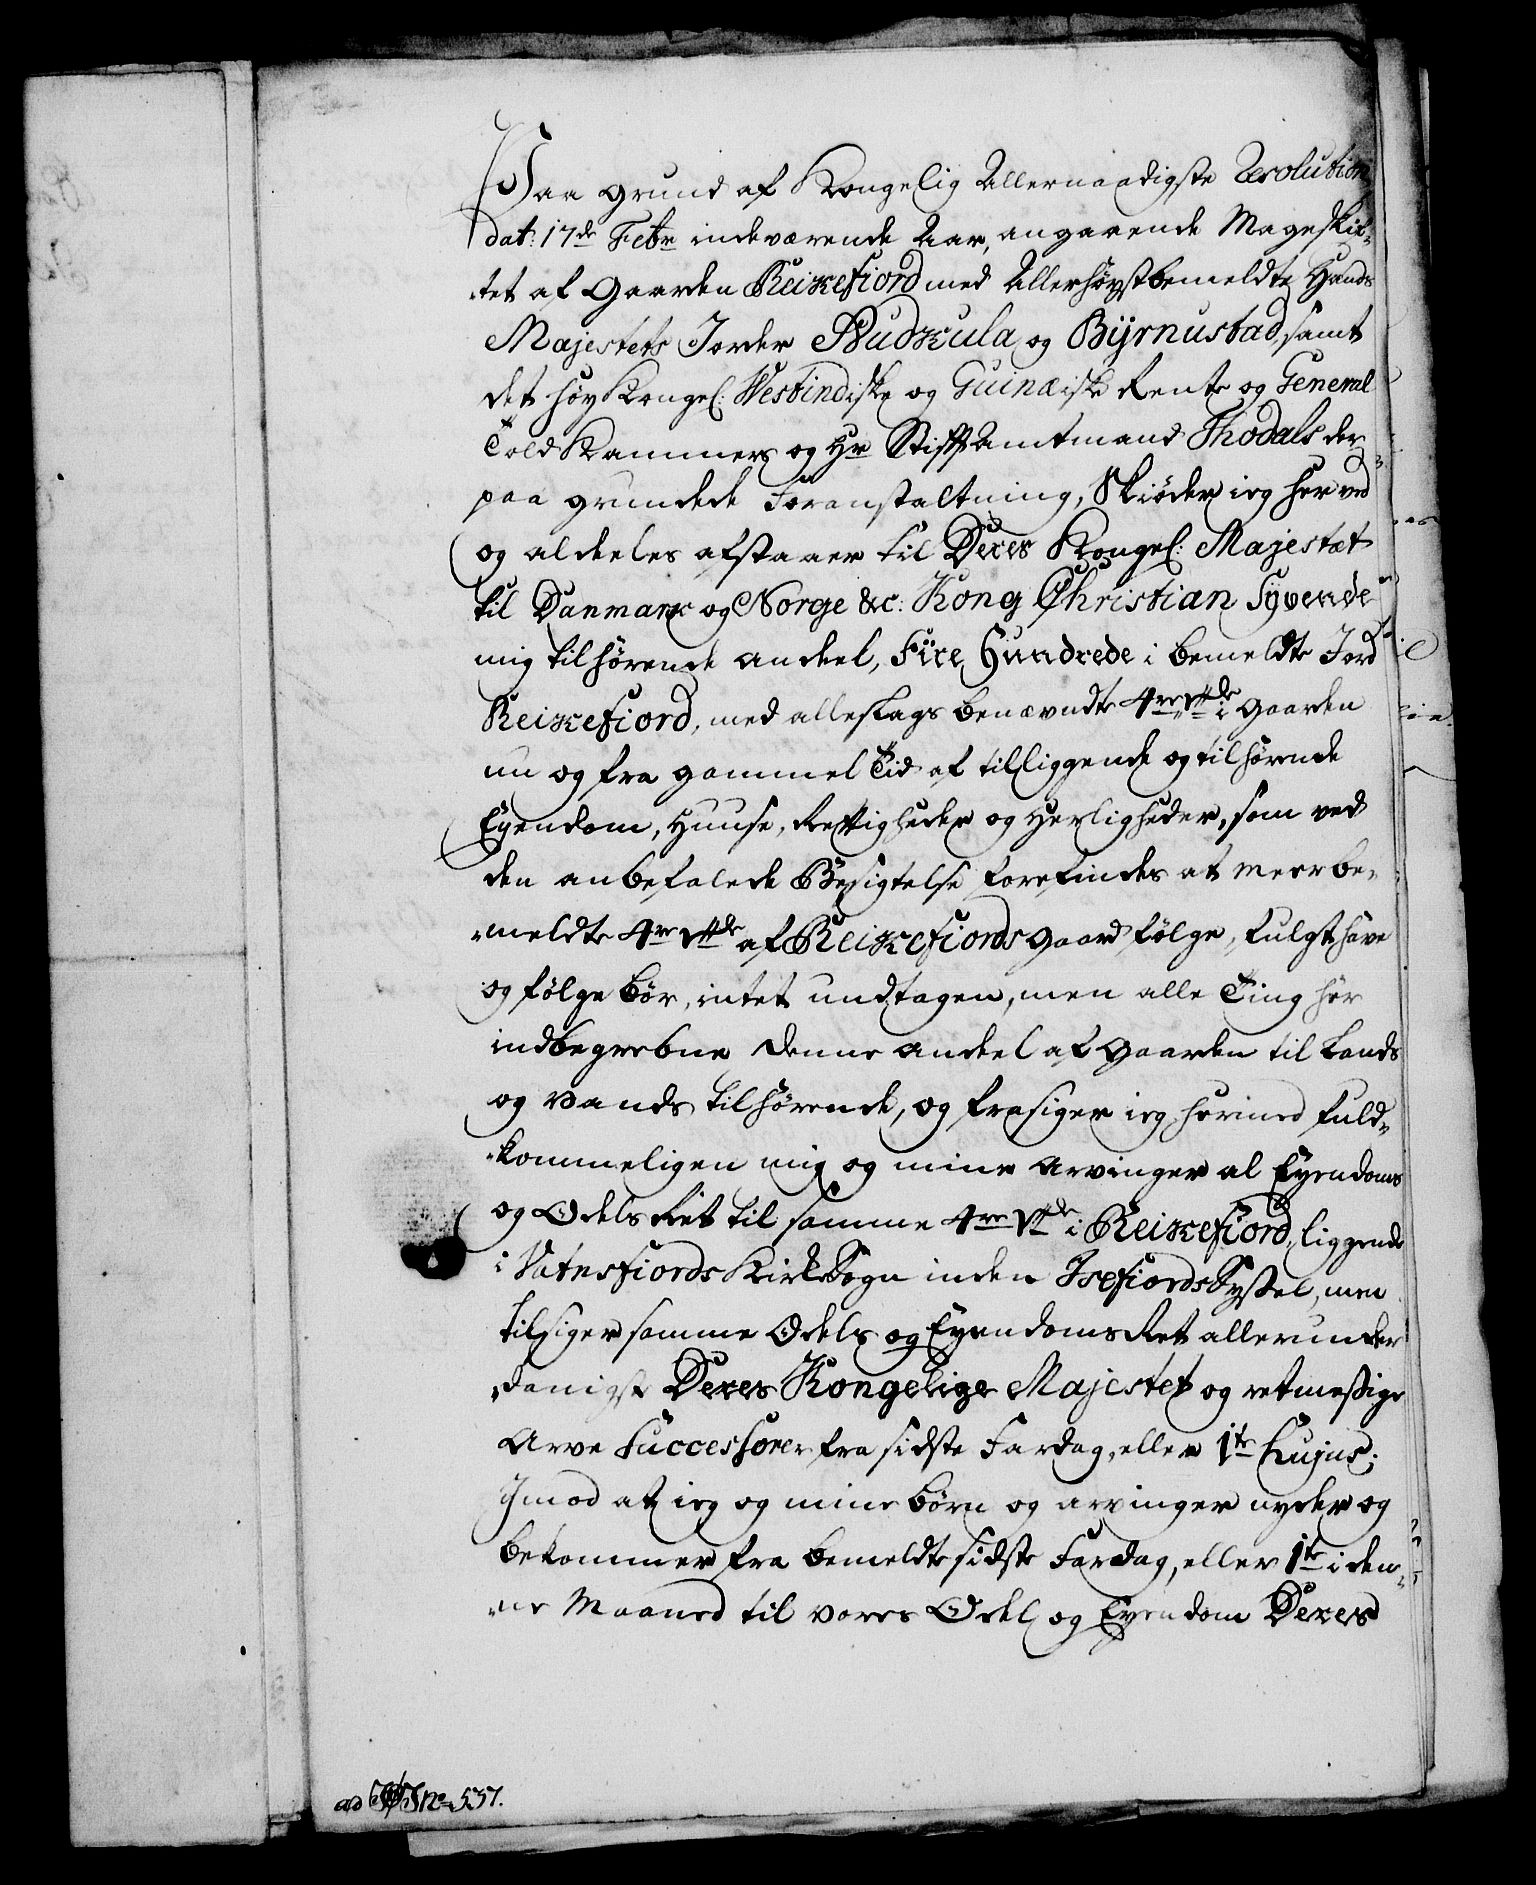 Paa grund af Kongelig Allernaadigste Resolution
dat: 17de Febr indeværende Aar, angaaende Mageskif-
tet af Gaarden Reikefiord med Allerhøystbemeldte Hands
Majestets Jorder Audkula og Byrnustad, samt
det høy Kongel: Westindiske og Guinæiske Rente og General
Told Kammers og Hr Stiftamtmand Thodals der
paa grundede Foranstaltning, Skiøder ieg herved
og aldeeles afstaaer til Deres Kongel: Majestæt
til Danmark og Norge &c: Kong Christian Syvende
mig tilhørende andeel, Fire Hundrede i bemeldte Jord
Reikefiord, med alleslags benævndte 4re i Gaarden
nu og fra gammel Tid af tilliggende og tilhørende
Eyendom, Huuse, Rettigheder og Herligheder, som ved
den anbefalede Besigtelse forefindes at meerbe-
meldte 4re af Reikefiords gaard følge, fulgt have
og følge bør, intet undtagen, men alle Ting her
indbegrebne denne andeel af Gaarden til Lands
og Vands tilhørende, og frasiger ieg hermed fuld-
kommeligen mig og mine Arvinger al Eyendoms
og Odels Ret til samme 4re i Reikefiord, liggende
i Vatnsfiords Kirke Sogn inden Isefiords Syssel, men
tilsiger samme Odels og Eyendoms Ret allerunder
danigst Deres Kongelige Majestet og retmessige
Arve Successorer fra sidste Fardag, eller 1te hujus;
Imod at ieg og mine Børn og arvinger nyder og
bekommer fra bemeldte sidste Fardag, eller 1te i den-
ne Maaned til vores Odel og Eyendom Deres
ad No 537.